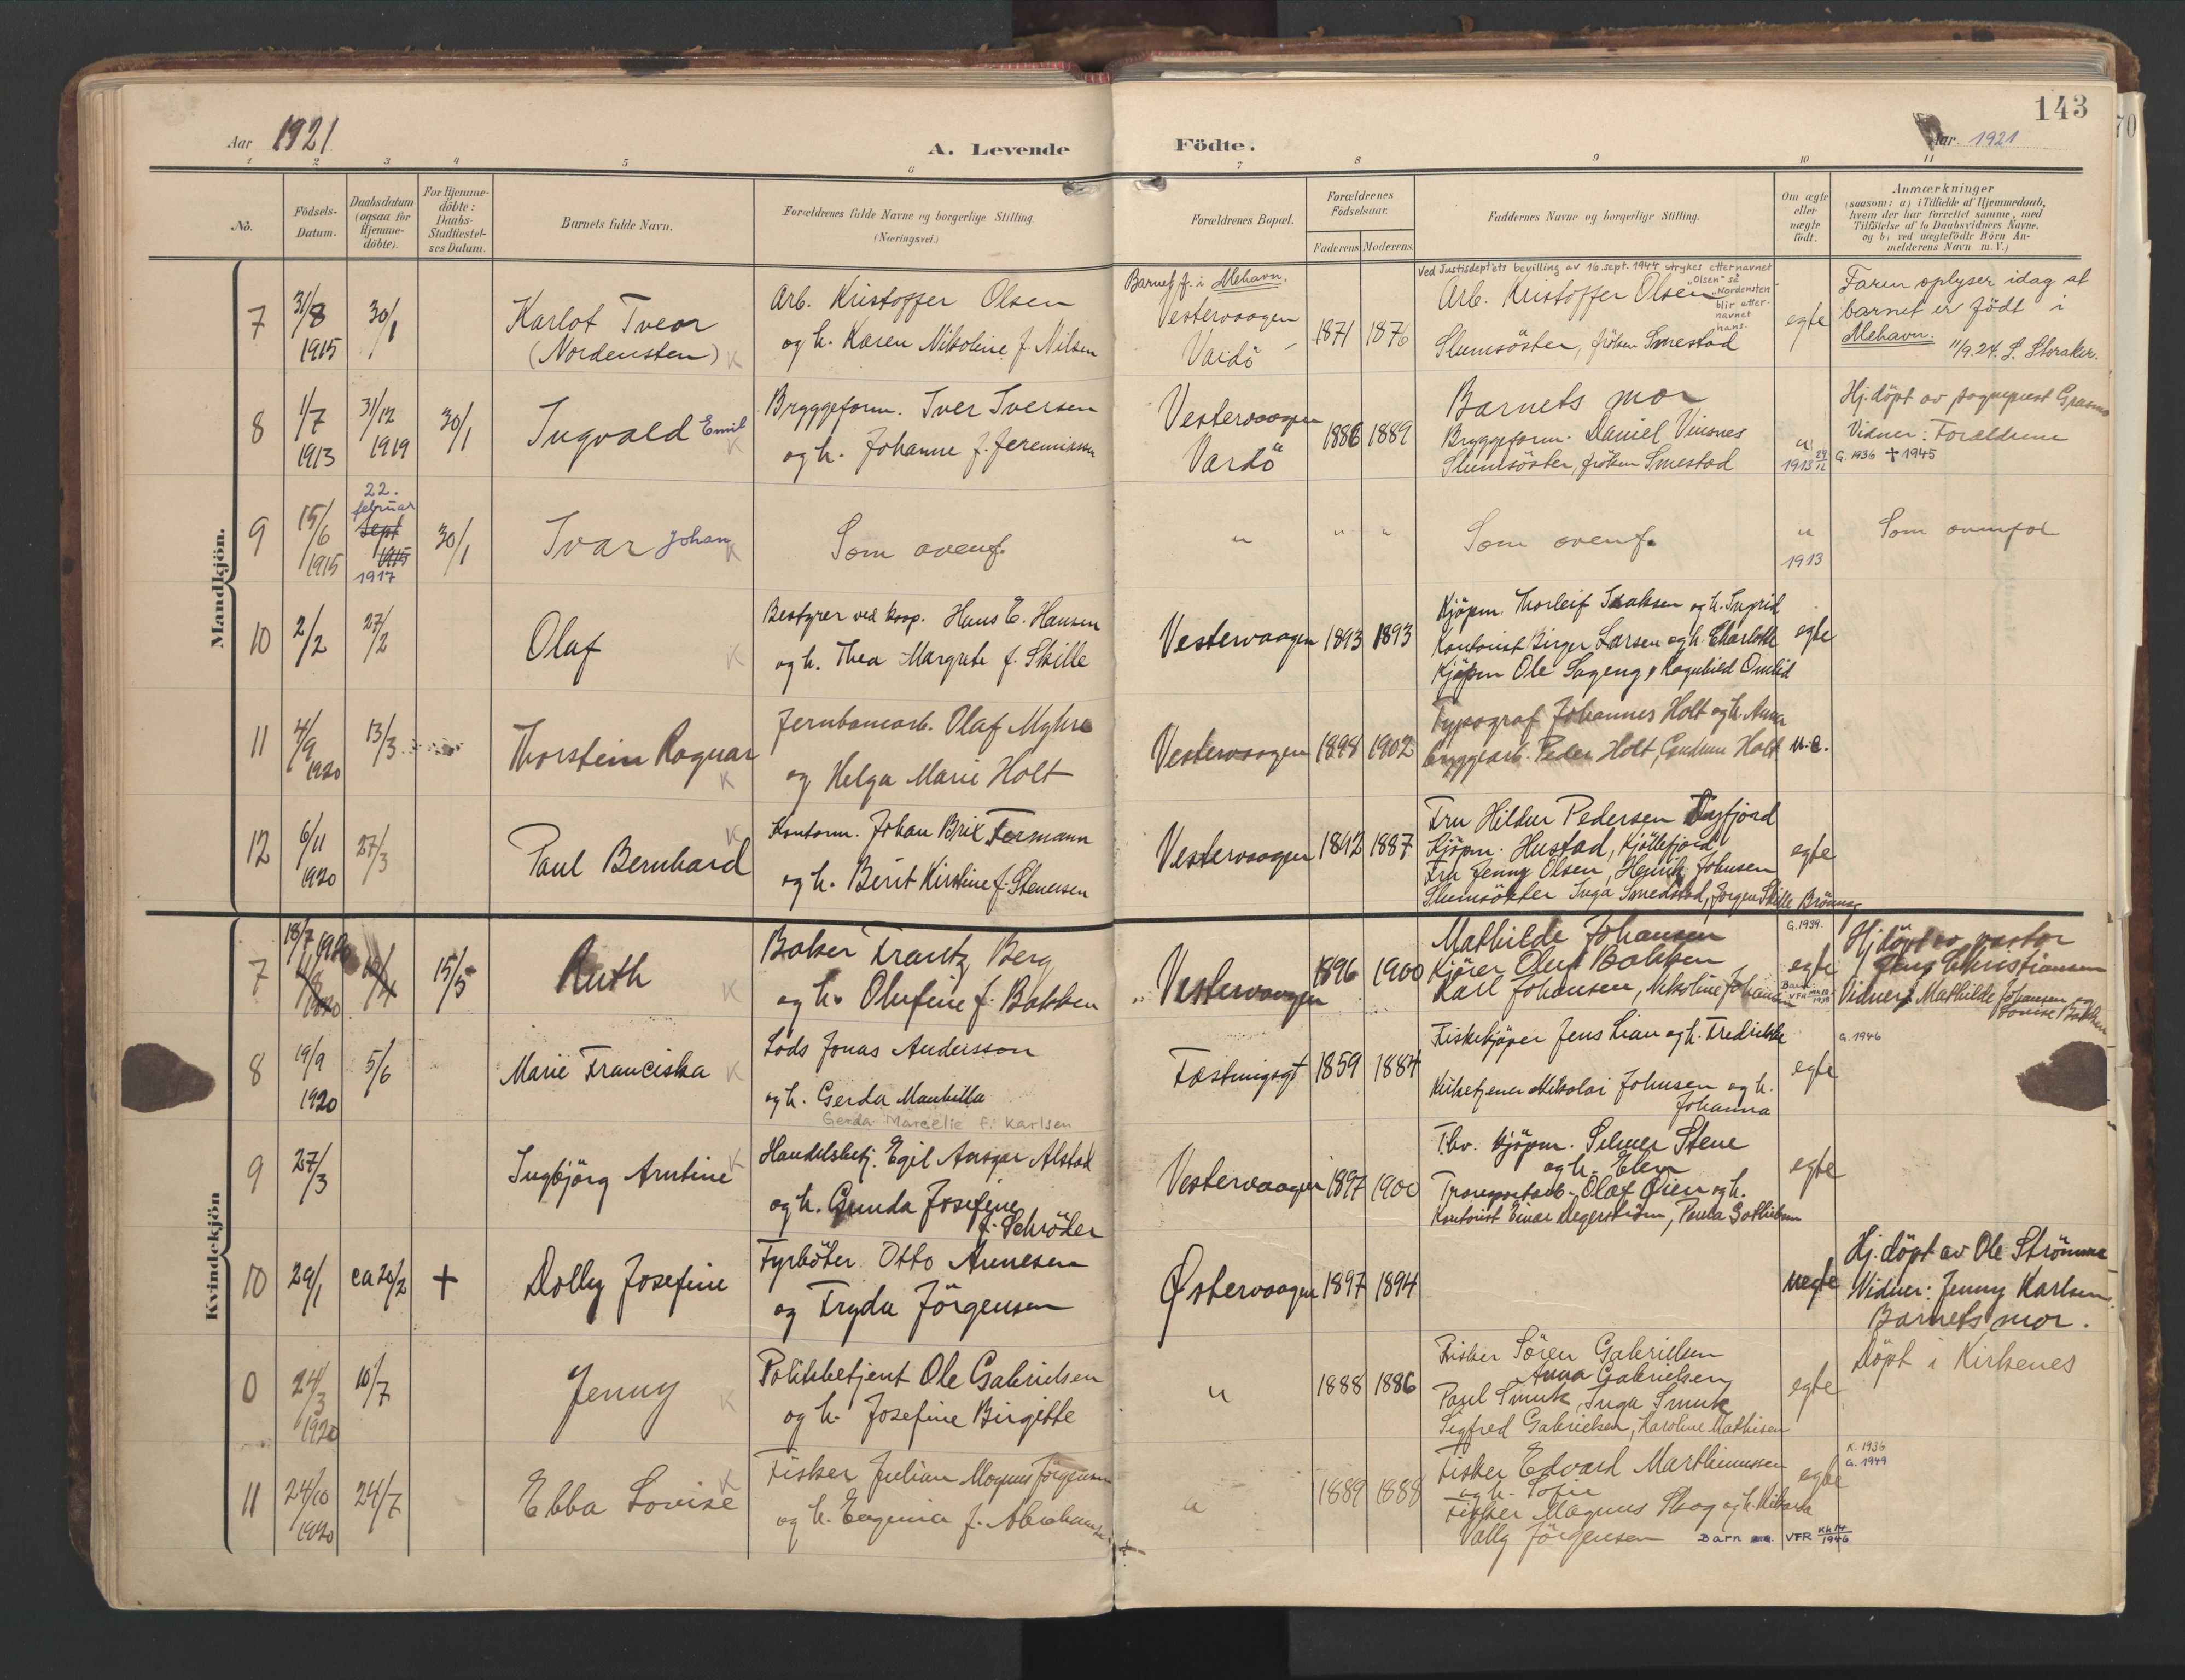 143
Aar 1921
A. Levende
Födte.
Aar 1921
1 2 3 4 5 6 7 8 9 10 11
No.
Födsels-Datum.
Daabsdatum (ogsaa for Hjemme-döbte).
For Hjemme-döbte: Daabs-Stadfæstel-ses Datum.
Barnets fulde Navn.
Forældrenes fulde Navne og borgerlige Stilling. (Næringsvei.)
Forældrenes Bopæl.
Forældrenes Födselsaar.
Faderens. Moderens.
Faddernes Navne og borgerlige Stilling.
Om ægte eller uægte födt.
Anmærkninger
(saasom: a) i Tilfælde af Hjemmedaab,
hvem der har forrettet samme, med
Tilföielse af to Daabsvidners Navne.
og b) ved uægtefödte Börn An-
melderens Navn m. V.)
Mandkjön.
7 31/8 1915 30/1
Karlot Tveor
(Nordensten) K
Arb. Kristoffer Olsen
og h. Karen Nikoline f. Nilsen
Barnet f. i Mehavn.
Vestervaagen
Vardö
1871 1876
Ved Justisdept'ets bevilling av 16. sept. 1944 strykes etternavnet
"Olsen" så "Nordensten" blir etter-navnet hans.
Arb. Kristoffer Olsen
Slumsöster, fröken Smestad
egte
Faren oplyser idag at
barnet er födt i
Mehavn.
11/9.24. S. Storaker.
8 1/7 1913 31/12 1919 30/1
Ingvald Emil K
Bryggeform. Iver Iversen
og h. Johanne f. Jeremiassen
Vestervaagen
Vardö
1886 1889
Barnets mor
Bryggeform. Daniel Vinsnes
Slumsöster, fröken Smestad
"
1913 29/12
Hj. döpt av sogneprest
Vidner: Forældrene
G. 1936 + 1945
9 15/6 1915 22. februar sept 1915 1917 30/1
Ivar Johan K
Som ovenf.
" " "
Som ovenf.
"
1913
Som ovenfor
10 2/2 27/2
Olaf K
Bestyrer ved koop. Hans E. Hansen
og h. Thea Margrete f. Skille
Vestervaagen 1893 1893
Kjöpm. Thorleif Isaksen og h. Ingrid
Kontorist Birger Larsen og h. Charlotte
Kjöpm Ole Sageng, Ragnhild Omlid
egte
11 4/9 1920 13/3
Thorstein Ragnar K
Jernbanearb. Olaf Myhre
og Helga Marie Holt
Vestervaagen 1898 1902
Typograf Johannes Holt og h. Anna
Bryggearb. Peder Holt, Gudrun Holt
u.e.
12 6/11 1920 27/3
Paul Bernhard K
Kontorm. Johan Brix Fermann
og h. Berit Kirstine f. Stenersen
Vestervaagen 1842 1887
Fru Hildur Pedersen
Kjöpm. Hustad, Kjöllefjord
Fru Jenny Olsen, Henrik Johnsen
Slumsöster Inga Smedstad, Jörgen Skille
egte
Kvindekjön
7 18/7 1920 15/5
Ruth K
Baker Frantz Berg
og h. Olufine f. Bakken
Vestervaagen
1896 1900
Mathilde Johansen
Kjörer Oluf Bakken
Karl Johansen, Nikoline Johansen
G. 1939.
egte
Hj. döpt av pastor
Jens Christiansen
Vidner: Mathilde Johansen og
Lovise Bakken
8 19/9 1920 5/6
Marie Franciska K
Lods Jonas Andersson
og h. Gerda
Gerda Marcelie f. Karlsen
Fæstningsgt 1859 1884
Fiskekjöper Jens Lian og h. Fredrikke
Kirketjener Nikolai Johnsen og h.
Johanna
egte
G. 1946
9 27/3
Ingbjörg Arntine K
Handelsbetj. Egil Ansgar Alstad
og h. Gunda Josefine
f. Schröder
Vestervaagen 1897 1900
Thv. kjöpm. Selmer Stene
og h. Elen
Transportarb. Olaf Öien og h.
Kontorist Einar Degerström, Paula Gotliebsen
egte
10 29/1 ca 20/2 +
Dolly Josefine
Fyrböter Otto Arnesen
og Fryda Jörgensen
Østervaagen 1897 1894
uegte
Hj. döpt av Ole Strömme
Vidner: Jenny Karlsen
Barnets mor.
0 24/3 1920 10/7
Jenny K
Politibetjent Ole Gabrielsen
og h. Josefine Birgitte
" 1888 1886
Fisker Sören Gabrielsen
Anna Gabrielsen
Paul Smuk, Inga Smuk
Sigfred Gabrielsen, Karoline Mathisen
egte
Döpt i Kirkenes
11 24/10 1920 24/7
Ebba Lovise K
Fisker Julian Magnus Jörgensen
og h. Eugenia f. Abrahamsen
" 1889 1888
Fisker Edvard Marthinussen
og h. Sofie
Fisker Magnus Skog og h.
Vally Jörgensen
egte
K. 1936
G. 1949
Barn VFR 1946